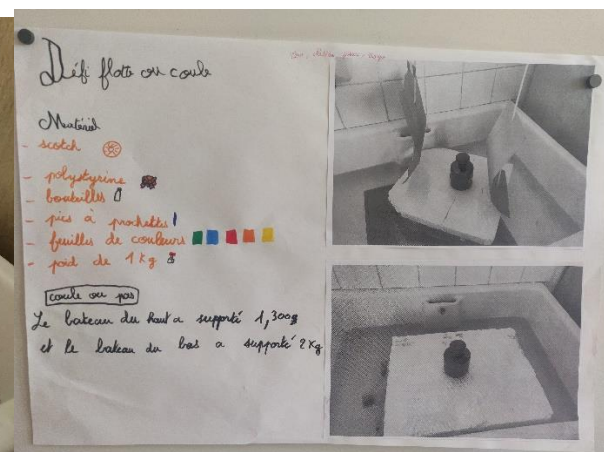 Défi flotte ou coule
Matériel
- scotch
- polystyrine
- bouteilles
- pics à brochettes
- feuilles de couleurs
- poid de 1 Kg
coule ou pas
Le bateau du haut a supporté 1,300g
et le bateau du bas a supporté 2 Kg